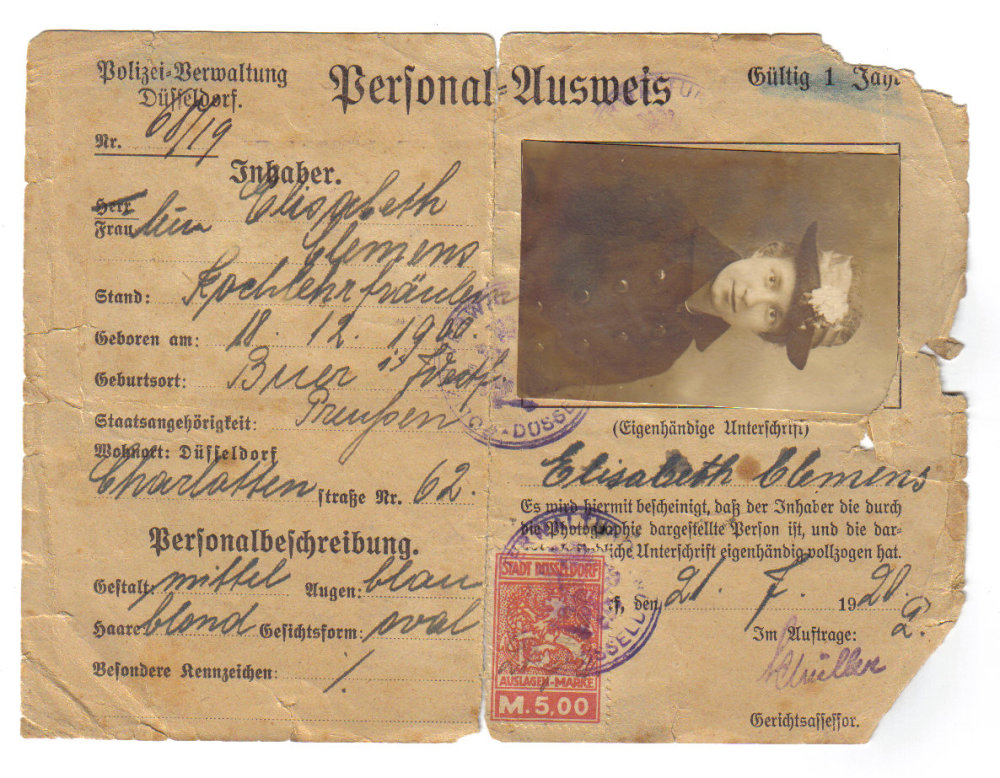 Polizei-Verwaltung
Düsseldorf.
Nr. 68/19
Personal-Ausweis
Gültig 1 Jahr
Inhaber.
Herr
Frau Elisabeth
Clemens
Stand: Kochlehrfräulein
Geboren am: 18. 12. 1900.
Geburtsort: Buer i. Westf.
Staatsangehörigkeit: Preußen
Wohnort: Düsseldorf
Charlotten straße Nr. 62.
Personalbeschreibung.
Gestalt: mittel Augen: blau
Haare blond Gesichtsform: oval
Besondere Kennzeichen: /
(Eigenhändige Unterschrift)
Elisabeth Clemens
Es wird hiermit bescheinigt, daß der Inhaber die durch
die Photographie dargestellte Person ist, und die dar-
liche Unterschrift eigenhändig vollzogen hat.
den 21. 7. 1920.
Im Auftrage:
Müller
Gerichtsassessor.
STADT DÜSSELDORF
AUSLAGEN-MARKE
M. 5,00
DÜSSELDORF